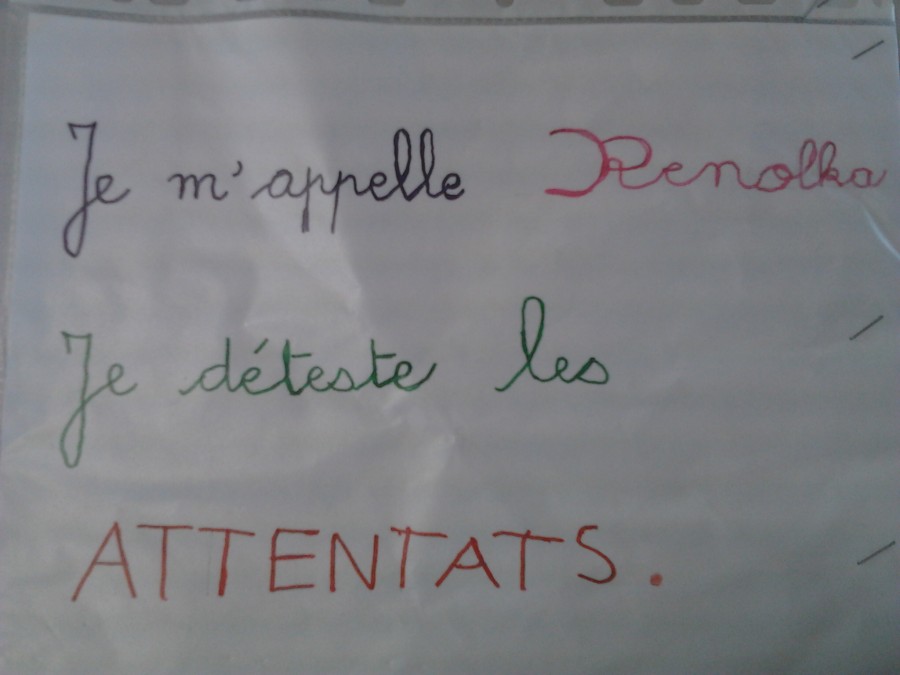 Je m'appelle Renolka
Je déteste les
ATTENTATS.